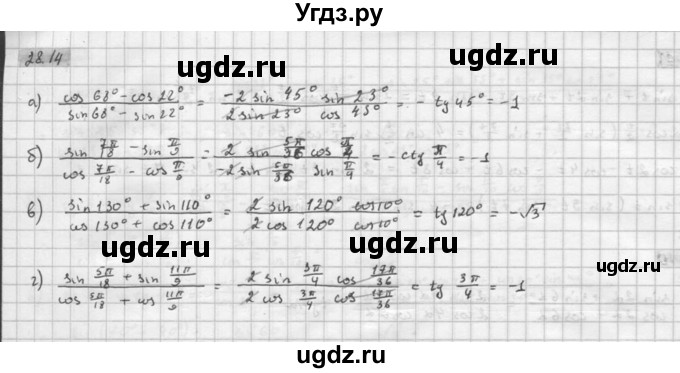 Угдз.ру
28.14
ugdz.ru ugdz.ru
а) (cos 68° - cos 22°)/(sin 68° - sin 22°) = (-2 sin 45° sin 23°)/(2 sin 23° cos 45°) = - tg 45° = -1
ugdz.ru
б) (sin 7π/18 - sin π/9)/(cos 7π/18 - cos π/9) = (2 sin 5π/36 cos π/4)/(-2 sin 5π/36 sin π/4) = - ctg π/4 = -1
ugdz.ru ugdz.ru
в) (sin 130° + sin 110°)/(cos 130° + cos 110°) = (2 sin 120° cos 10°)/(2 cos 120° cos 10°) = tg 120° = -√3
ugdz.ru
г) (sin 5π/18 + sin 11π/9)/(cos 5π/18 + cos 11π/9) = (2 sin 3π/4 cos 17π/36)/(2 cos 3π/4 cos 17π/36) = tg 3π/4 = -1
ugdz.ru ugdz.ru
ugdz.ru